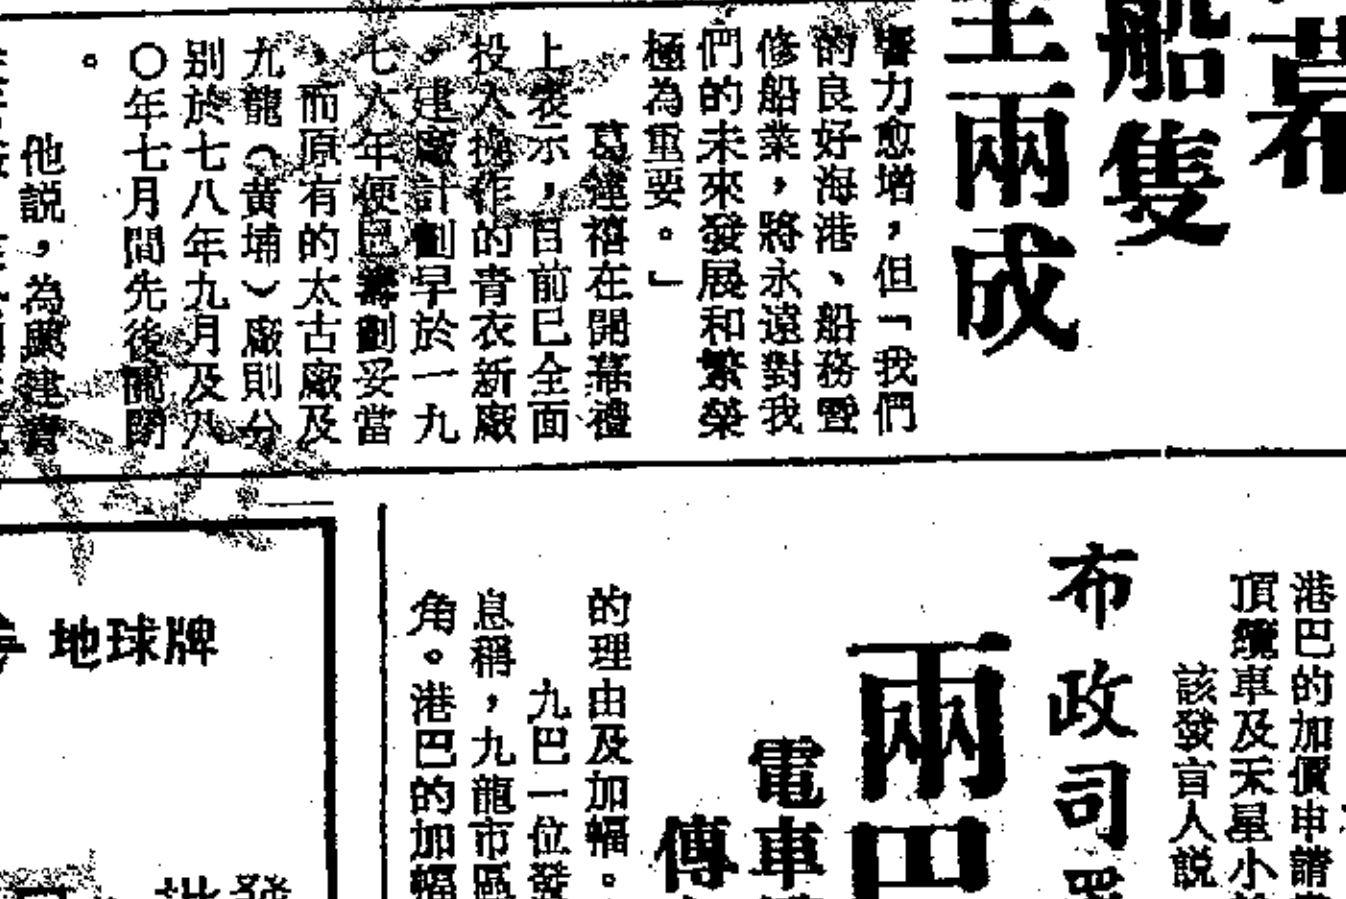 幕
船隻
至兩成
響力愈增，但「我們
的良好海港、船務暨
修船業，將永遠對我
們的未來發展和繁榮
極為重要。」
葛達禧在開幕禮
上表示，目前已全面
投入操作的青衣新廠
，建廠計劃早於一九
七六年便已籌劃妥當
，而原有的太古廠及
九龍（黃埔）廠則分
别於七八年九月及八
〇年七月間先後關閉
。
他説，為興建
港巴的加價申請
頂纜車及天星小
該發言人説
布政司
兩巴
電車
傳
的理由及加幅。
九巴一位發
息稱，九龍市區
角。港巴的加幅
地球牌